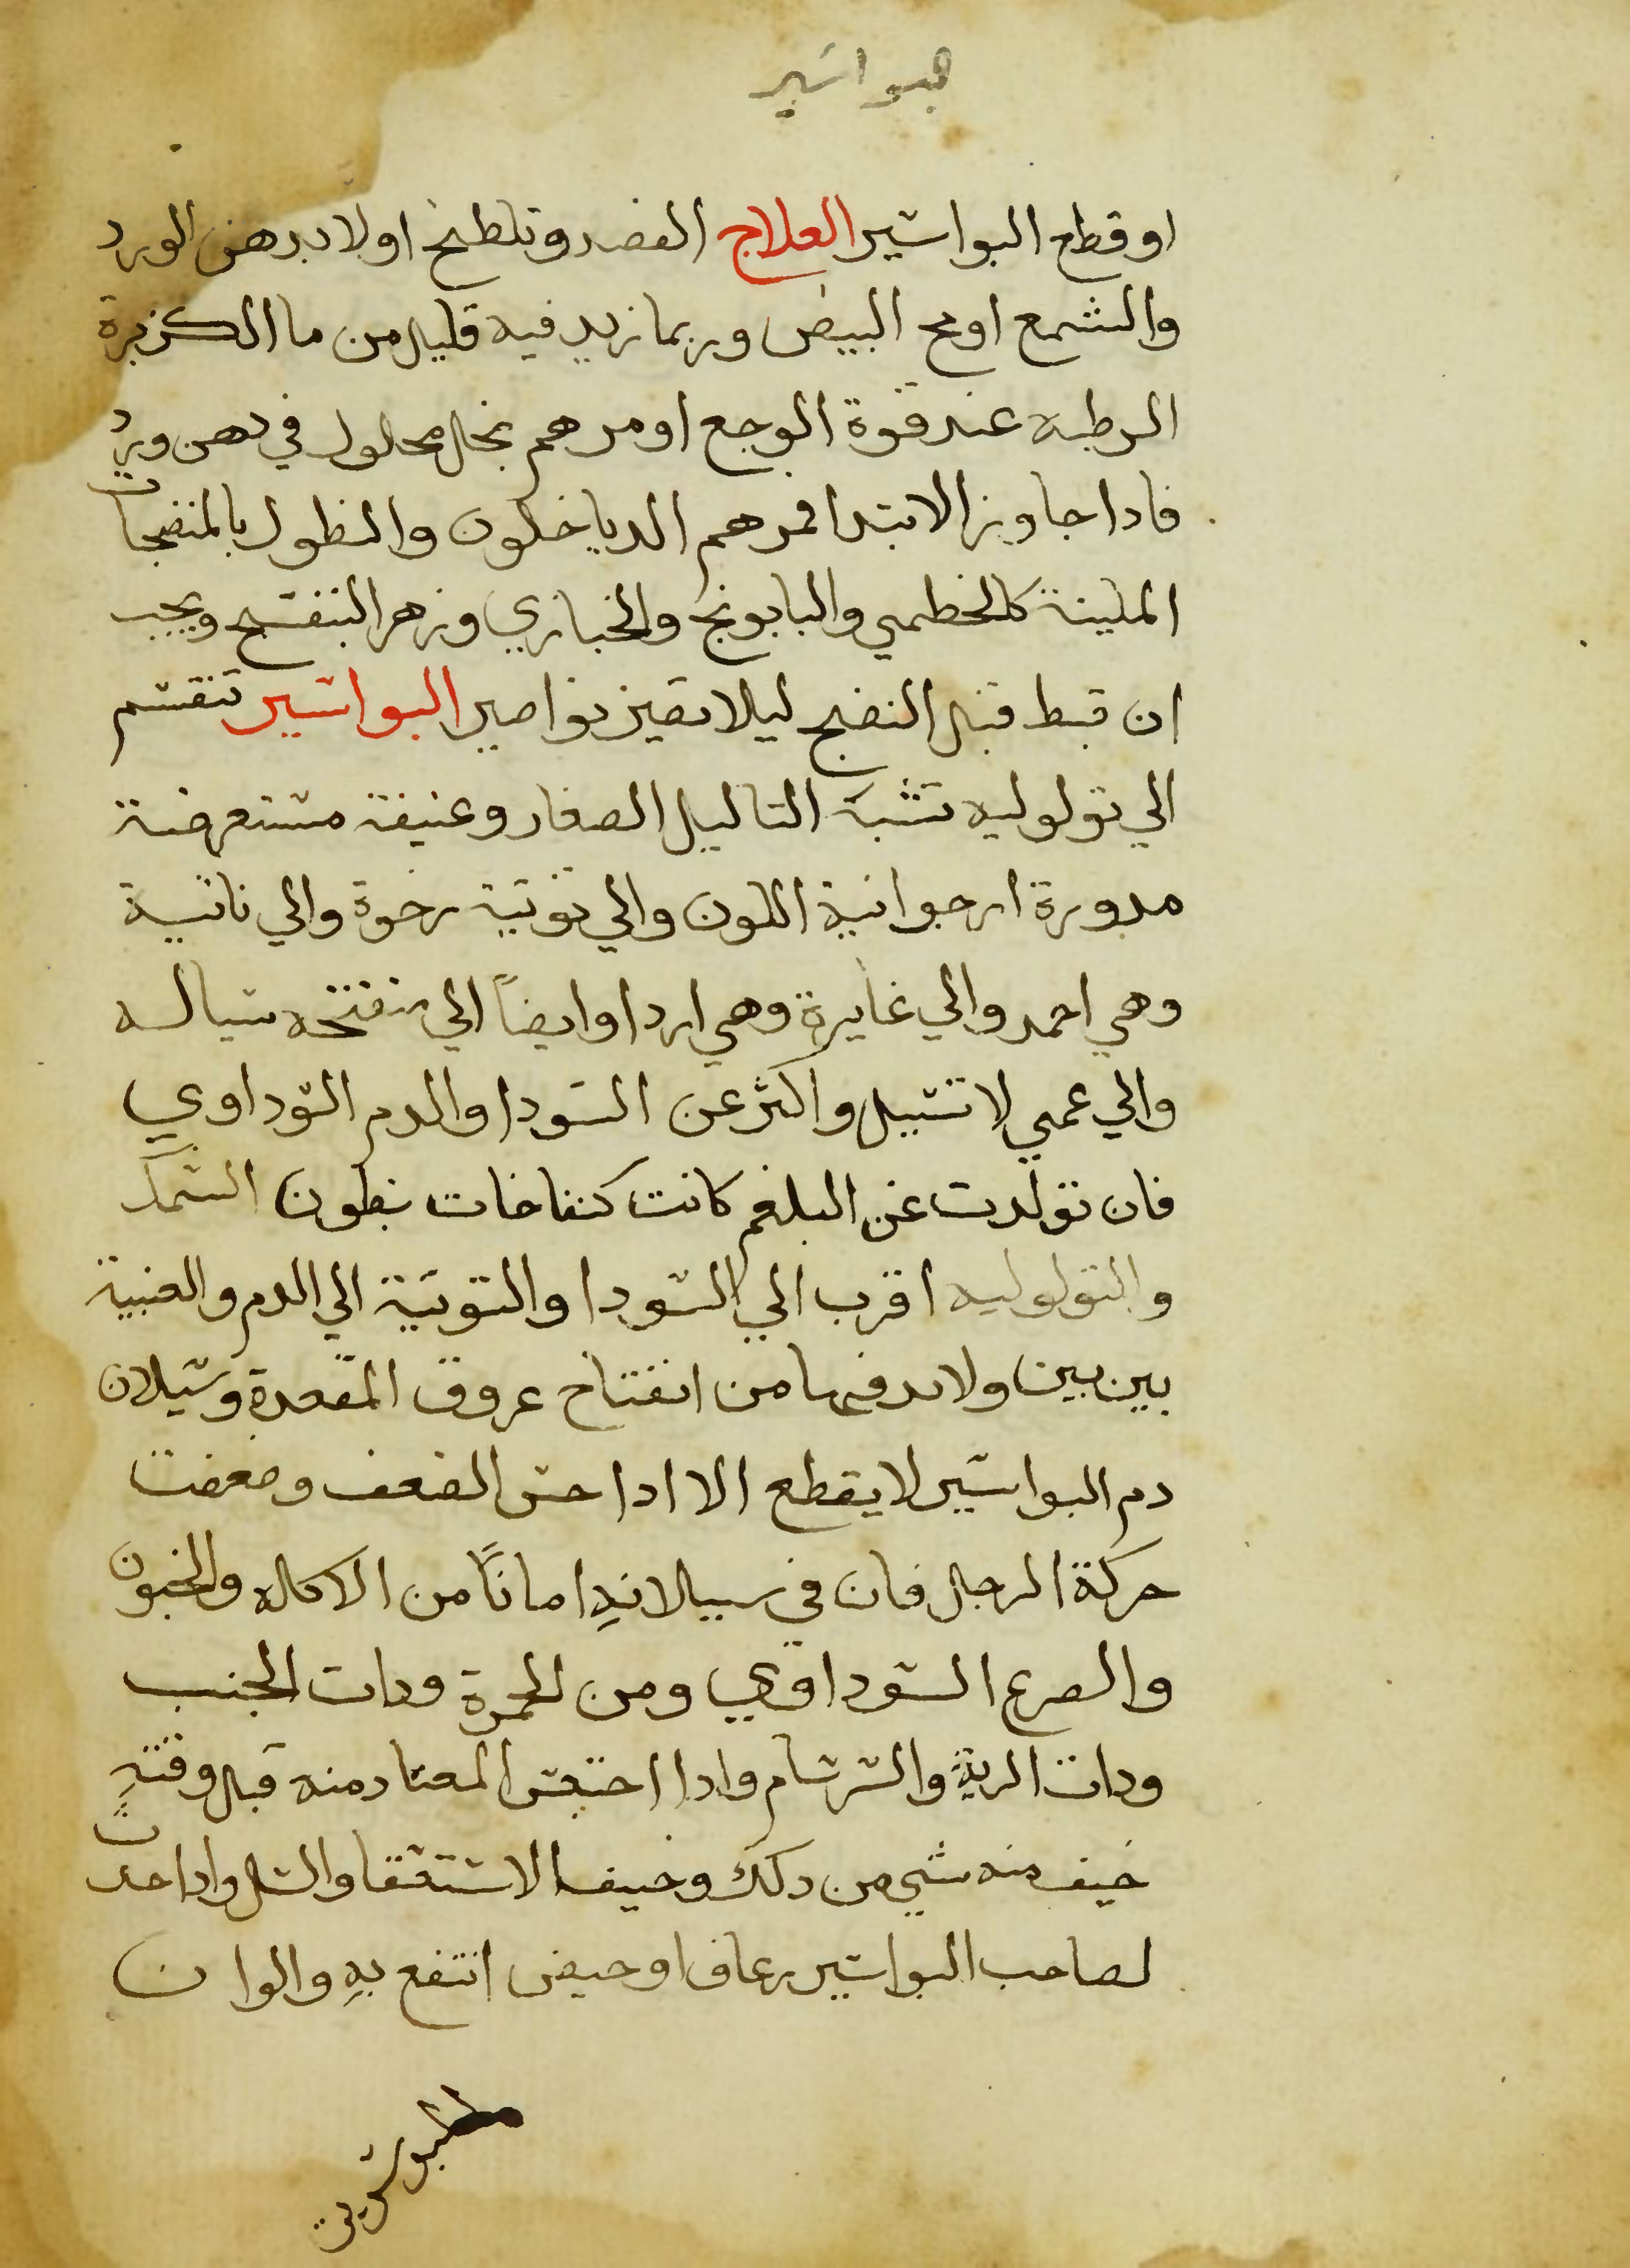 بواسير
او قطع البواسير العلاج الفصد وتلطخ اولا بدهن الورد
والشمع او مح البيض وربما زيد فيه قليل من ما الكزبرة
الرطبه عند قوة الوجع او مرهم بخل محلول في دهن ورد
فادا جاوز الابتدا فمرهم الدياخلون والنطول بالمنضجات
الملينة كالخطمي والبابونج والخبازي وزهر البنفسج ويجب
ان تبط قبل النضج ليلا تصير نواصير البواسير تنقسم
الي تولوليه تشبه التاليل الصغار وعنبية مستعرضة
مدورة ارجوانية اللون والي توتية رخوة والي ناتية
وهي احمد والي غايرة وهي اردا وايضاً الي منفتحه سياله
والي عمي لا تسيل واكثر عن السودا والدم السوداوي
فان تولدت عن البلغم كانت كنفاخات بطون السمك
والتولوليه اقرب الي السودا والتوتية الي الدم والعنبية
بين بين ولا بد فيها من انفتاح عروق المقعدة وسيلان
دم البواسير لا يقطع الا ادا حس الضعف وضعفت
حركة الرجل فان في سيلانهِ اماناً من الاكاله والجنون
والصرع السوداوي ومن الحمرة ودات الجنب
ودات الرية والسرسام وادا احتبس المعتاد منه قبل وقتهِ
خيف منه شي من دلك وخيف الاستسقا والسل وادا حدت
لصاحب البواسير رعاف او حيض انتفع بهِ والوان